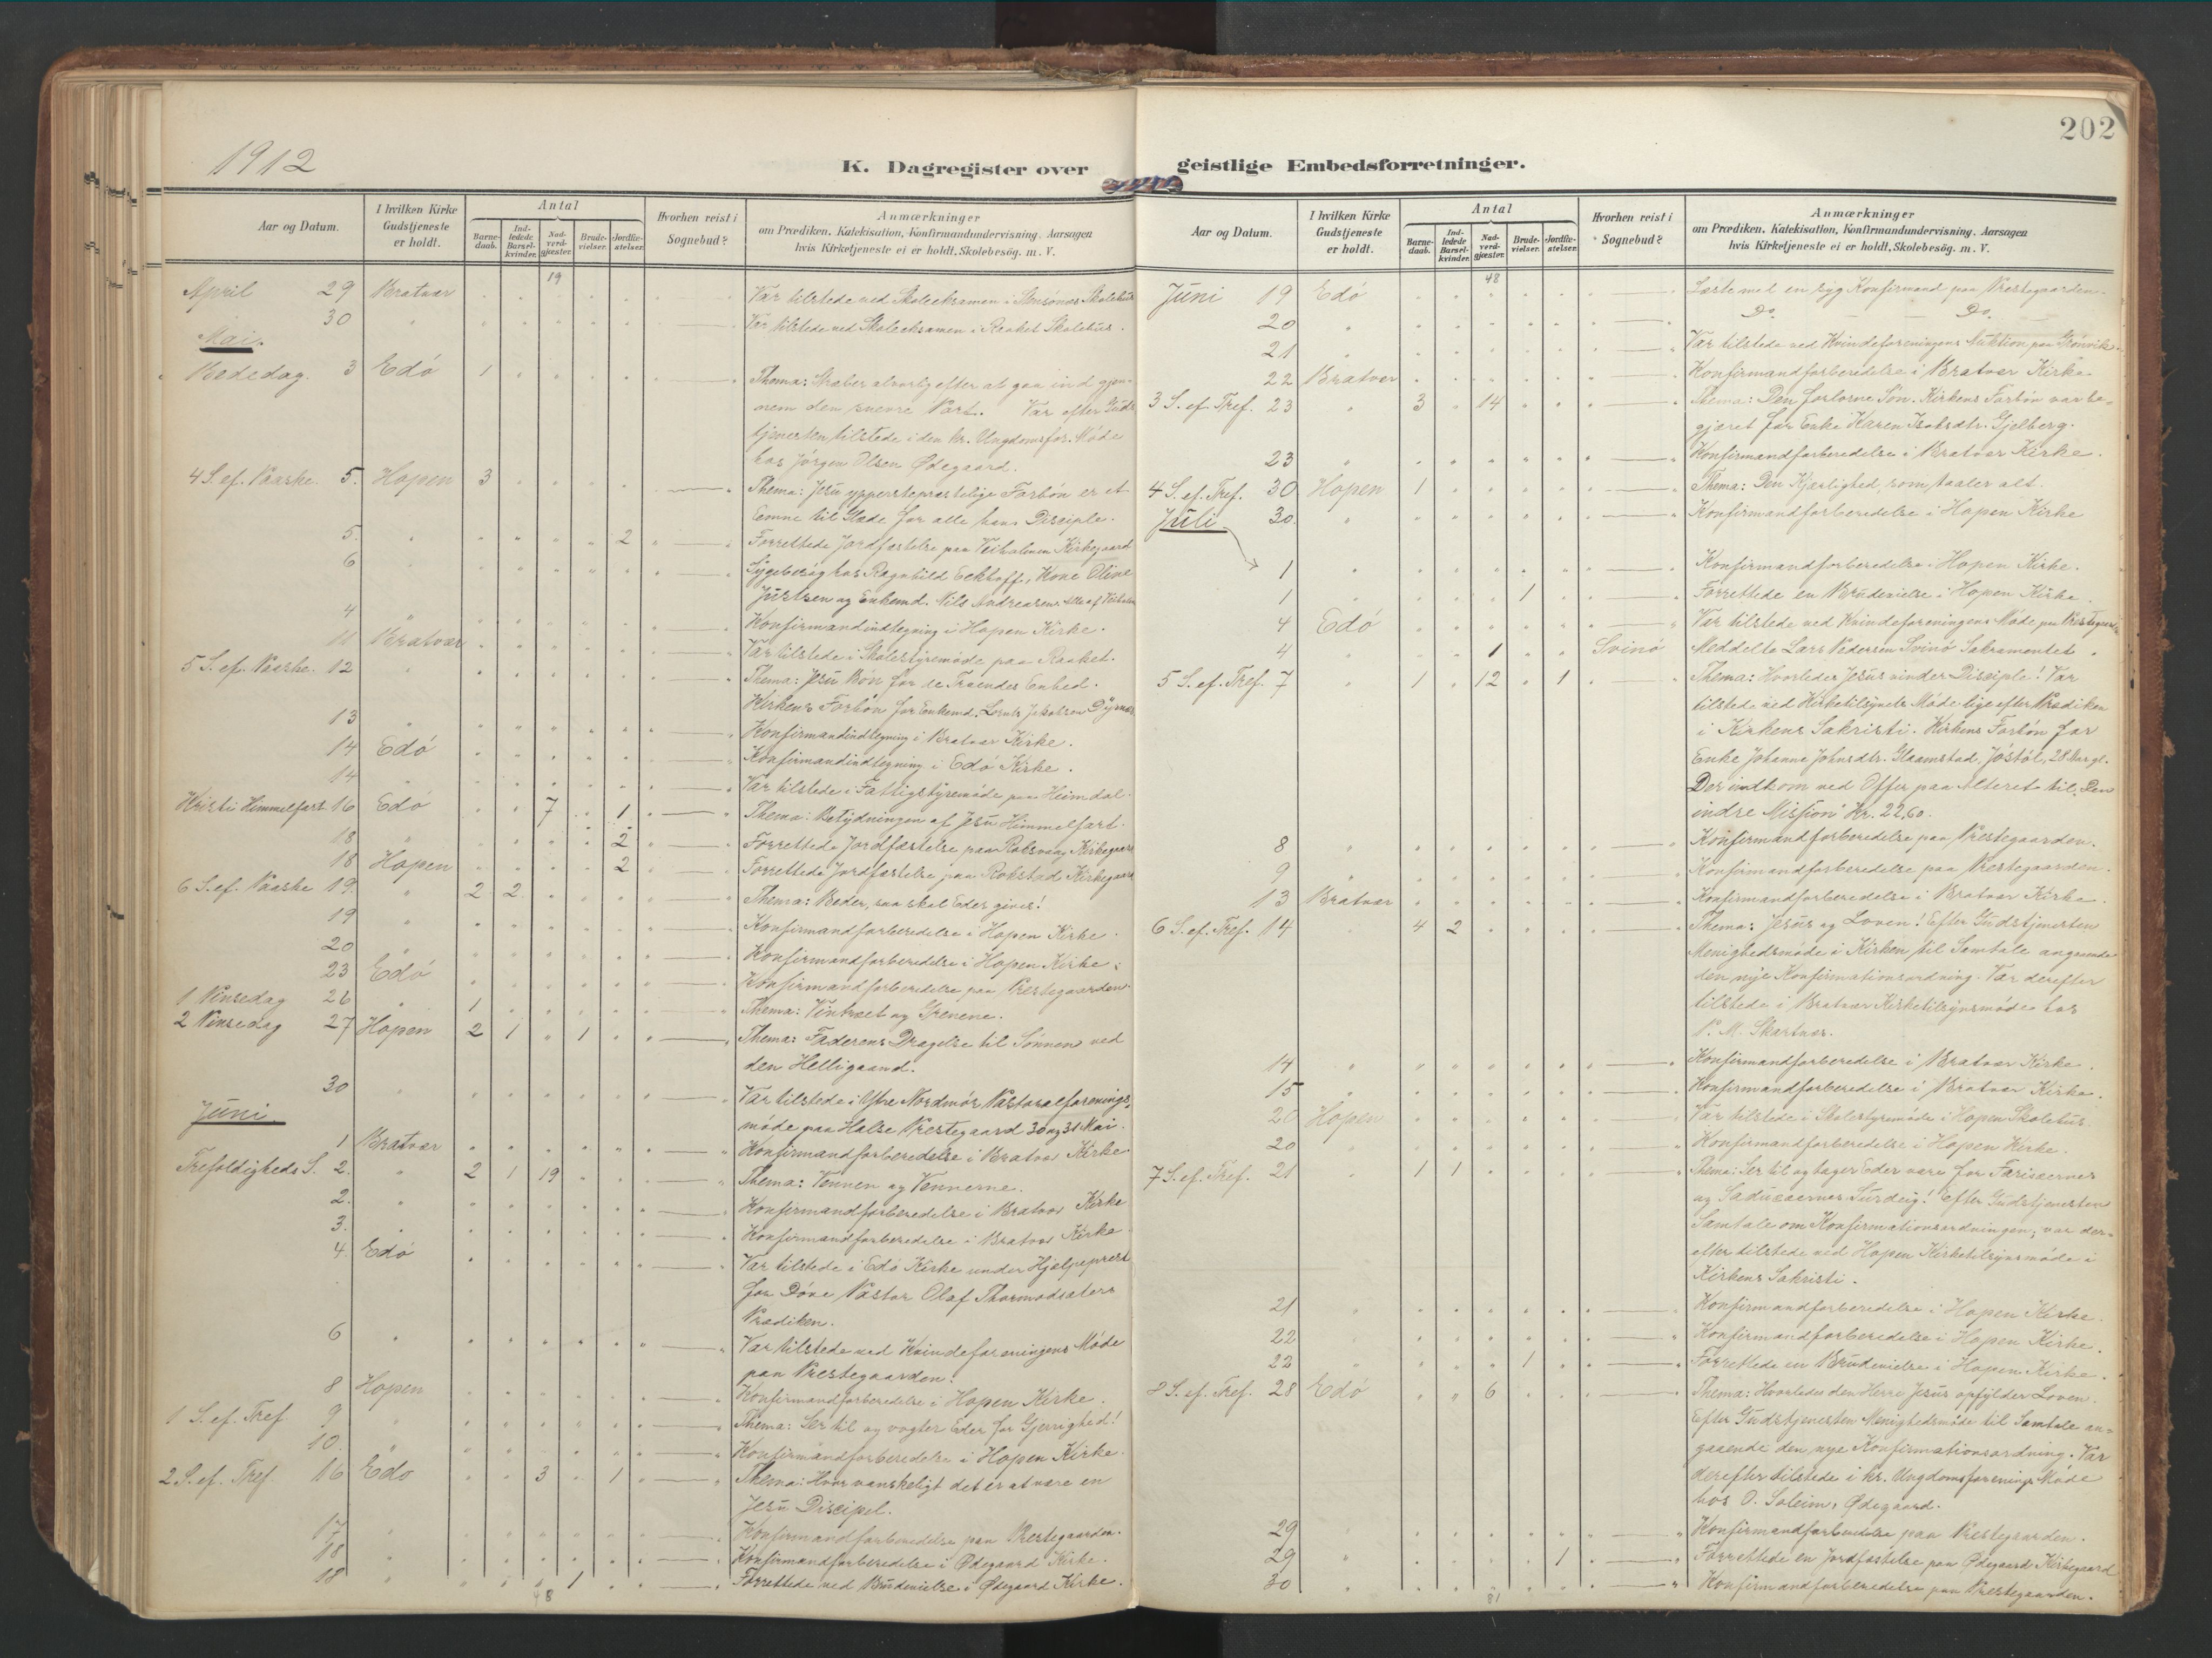 1912
K. Dagregister over
Aar og Datum.
I hvilken Kirke Gudstjeneste er holdt.
Antal
Barne-daab.
Ind-ledede Barsel-kvinder.
Nad-verd-gjæster.
Brude-vielser.
Jordfæ-stelser.
Hvorhen reist i Sognebud?
Anmærkninger
om Prædiken, Katekisation, Konfirmandundervisning, Aarsagen
hvis Kirketjeneste ei er holdt, Skolebesög. m. V.
19
April 29 Bratvær Var tilstede ved Skoleeksamen i Skolehus
30 " Var tilstede ved Skoleeksamen i Raaket Skolehus.
Mai.
Bededag. 3 Edö 1 Thema: Stræber alvorlig efter at gaa ind gjen-
nem den snevre Port. Var efter Guds
tjenesten tilstede i den kr. Ungdomsfor. Möde
hos Jörgen Olsen Ødegaard.
4 S. ef. Paaske. 5. Hopen 3 Thema: Jesu ypperstepræstelige Forbön er et
Emne til Glæde for alle hans Disciple.
5. " 2 Forrettede Jordfæstelse paa Veiholmen Kirkegaard
6 Sygebesög hos Ragnhild Eckhoff, Kone Oline
Justsen og Enkemd. Nils Andreasen. Alle af Veiholm
4 " Konfirmandindtegning i Hopen Kirke.
11 Bratvær Var tilstede i Skolestyremöde paa Raaket.
5 S. ef. Paaske. 12 " Thema: Jesu Bön for de Troendes Enhed.
Kirkens Forbön for Enkemd. Lorents Jakobsen Dyrnes
13 " Konfirmandindtegning i Bratvær Kirke.
14 Edö Konfirmandindtegning i Edö Kirke.
14 " Var tilstede i Fattigstyremöde paa Heimdal.
Kristi Himmelfart 16 Edö 7 1 Thema: Betydningen af Jesu Himmelfart.
18 " 2 Forrettede Jordfæstelse paa Kirkegaard
18 Hopen 2 Forrettede Jordfæstelse paa Rokstad Kirkegaard
6 S. ef. Paaske 19. " 2 2 Thema: Beder, saa skal Eder gives!
19 " Konfirmandforberedelse i Hopen Kirke.
20 " Konfirmandforberedelse i Hopen Kirke.
23 Edö Konfirmandforberedelse paa Prestegaarden.
1 Pinsedag 26 " 1 Thema: Vintræet og Grenene.
2 Pinsedag 27 Hopen 2 1 " 1 Thema: Faderens Dragelse til Sönnen ved
den Helligaand.
30 " Var tilstede i Ytre Nordmör Pastoralforenings-
möde paa Halse Prestegaard 30 og 31 Mai.
Juni.
1 Bratvær Konfirmandforberedelse i Bratvær Kirke
Trefoldigheds S. 2. " 2 1 19 Thema: Vennen og Vennerne.
2. " Konfirmandforberedelse i Bratvær Kirke
3. " Konfirmandforberedelse i Bratvær Kirke
4. Edö Var tilstede i Edö Kirke under Hjælpeprest
for Döve Pastor Olaf Thormodsæters
Prædiken.
6 " Var tilstede ved Kvindeforeningens Möde
paa Prestegaarden.
8 Hopen Konfirmandforberedelse i Hopen Kirke.
1 S. ef. Tref. 9 " Thema: Ser til og vogter Eder for Gjerrighed!
10. " Konfirmandforberedelse i Hopen Kirke.
2 S. ef. Tref. 16 Edö 3 1 Thema: Hvor vanskeligt det er at være en
Jesu Discipel.
17 " Konfirmandforberedelse paa Prestegaarden.
18 " Konfirmandforberedelse i Ødegaard Kirke.
18 " 1 Forrettede ved Brudevielse i Ødegaard Kirke.
48
202
geistlige Embedsforretninger.
Aar og Datum.
I hvilken Kirke Gudstjeneste er holdt.
Antal
Barne-daab.
Ind-ledede Barsel-kvinder.
Nad-verd-gjæster.
Brude-vielser.
Jordfæ-stelser.
Hvorhen reist i Sognebud?
Anmærkninger
om Prædiken, Katekisation, Konfirmandundervisning, Aarsagen
hvis Kirketjeneste ei er holdt, Skolebesög. m. V.
48
Juni 19 Edö Læste med en syg Konfirmand paa Prestegaarden.
20 " Do. Do.
21 " Var tilstede ved Kvindeforeningens Auktion paa Grönvik.
22 Bratvær Konfirmandforberedelse i Bratvær Kirke
3 S. ef. Tref. 23 " 3 14 Thema: Den forlorne Sön. Kirkens Forbön var be-
gjæret for Enke Karen Isaksdtr. Gjelberg.
23 " Konfirmandforberedelse i Bratvær Kirke.
4 S. ef. Tref. 30 Hopen 1 Thema: Den Kjærlighed, som taaler alt.
30. " Konfirmandforberedelse i Hopen Kirke
Juli
1 " Konfirmandforberedelse i Hopen Kirke.
1 " 1 Forrettede en Brudevielse i Hopen Kirke.
4 Edö Var tilstede ved Kvindeforeningens Möde paa Prestegaarden
4 " 1 Svinö Meddelte Lars Pedersen Svinö Sakramentet.
5 S. ef. Tref. 7 " 1 12 1 Thema: Hvorledes Jesus vinder Disciple! Var
tilstede ved Kirketilsynets Möde lige efter Prædiken
i Kirkens Sakristi. Kirkens Forbön for
Enke Johanna Johnsdtr. Glaamstad, Jöstöl, 28 Aar gl.
Der indkom ved Offer paa Alteret til "Den
indre Mission" Kr. 22,60.
8 " Konfirmandforberedelse paa Prestegaarden.
9 " Konfirmandforberedelse paa Prestegaarden.
13 Bratvær Konfirmandforberedelse i Bratvær Kirke.
6 S. ef. Tref. 14 " 4 2 Thema: Jesus og Loven! Efter Gudstjenesten
Menighedsmöde i Kirken til Samtale angaaende
den nye Konfirmationsordning. Var derefter
tilstede i Bratvær Kirketilsynsmöde hos
P. M. Skarvnes.
14 " Konfirmandforberedelse i Bratvær Kirke.
15 " Konfirmandforberedelse i Bratvær Kirke.
20 Hopen Var tilstede i Skolestyremöde i Hopen Skolehus.
20 " Konfirmandforberedelse i Hopen Kirke.
7 S. ef. Tref. 21 " 1 1 Thema: Ser til og tager Eder vare for Farisæernes
og Saducæernes Surdeig! Efter Gudstjenesten
Samtale om Konfirmationsordningen; var der-
efter tilstede ved Hopen Kirketilsynsmöde i
Kirkens Sakristi.
21 " Konfirmandforberedelse i Hopen Kirke.
22 " Konfirmandforberedelse i Hopen Kirke.
22 " 1 Forrettede en Brudevielse i Hopen Kirke.
8 S. ef. Tref. 28 Edö 6 Thema: Hvorledes den Herre Jesus opfylder Loven.
Efter Gudstjenesten Menighedsmöde til Samtale an-
gaaende den nye Konfirmationsordning. Var
derefter tilstede i kr. Ungdomsforenings Möde
hos O. Soleim, Ødegaard.
29 " Konfirmandforberedelse paa Prestegaarden.
29 " 1 Forrettede en Jordfæstelse paa Ødegaard Kirkegaard
30 " Konfirmandforberedelse paa Prestegaarden.
81